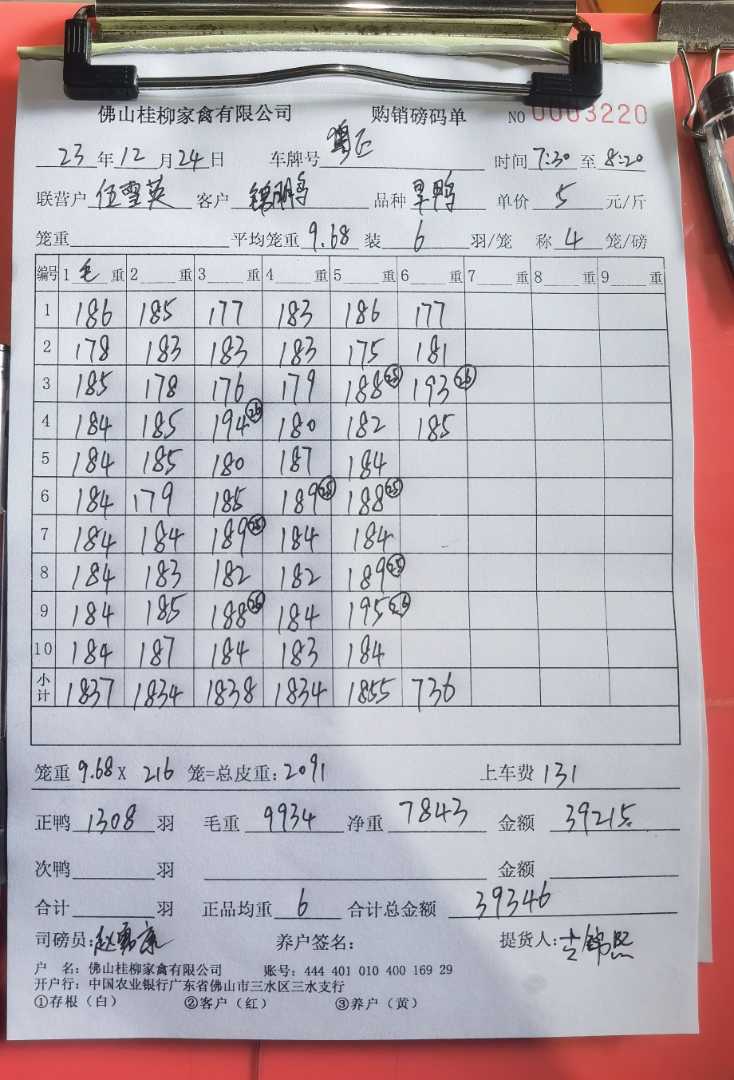 佛山桂柳家禽有限公司 购销磅码单 NO 0003220
23 年 12 月 24 日 车牌号 时间 7:30 至 8:20
联营户 伍雪英 客户 锦鹏鸟 品种 旱鸭 单价 5 元/斤
笼重 平均笼重 9.68 装 6 羽/笼 称 4 笼/磅
编号 1 毛 重 2 重 3 重 4 重 5 重 6 重 7 重 8 重 9 重
1 186 185 177 183 186 177
2 178 183 183 183 175 181
3 185 178 176 179 188 (25) 193 (26)
4 184 185 194 (26) 180 182 185
5 184 185 180 187 184
6 184 179 185 189 (25) 188 (25)
7 184 184 189 (25) 184 184
8 184 183 182 182 189 (25)
9 184 185 188 (26) 184 195 (26)
10 184 187 184 183 184
小计 1837 1834 1838 1834 1855 736
笼重 9.68 X 216 笼=总皮重: 2091 上车费 131
正鸭 1308 羽 毛重 9934 净重 7843 金额 39215
次鸭 羽 金额
合计 羽 正品均重 6 合计总金额 39346
司磅员: 养户签名: 提货人:
户 名: 佛山桂柳家禽有限公司 账号: 444 401 010 400 169 29
开户行: 中国农业银行广东省佛山市三水区三水支行
①存根（白） ②客户（红） ③养户（黄）